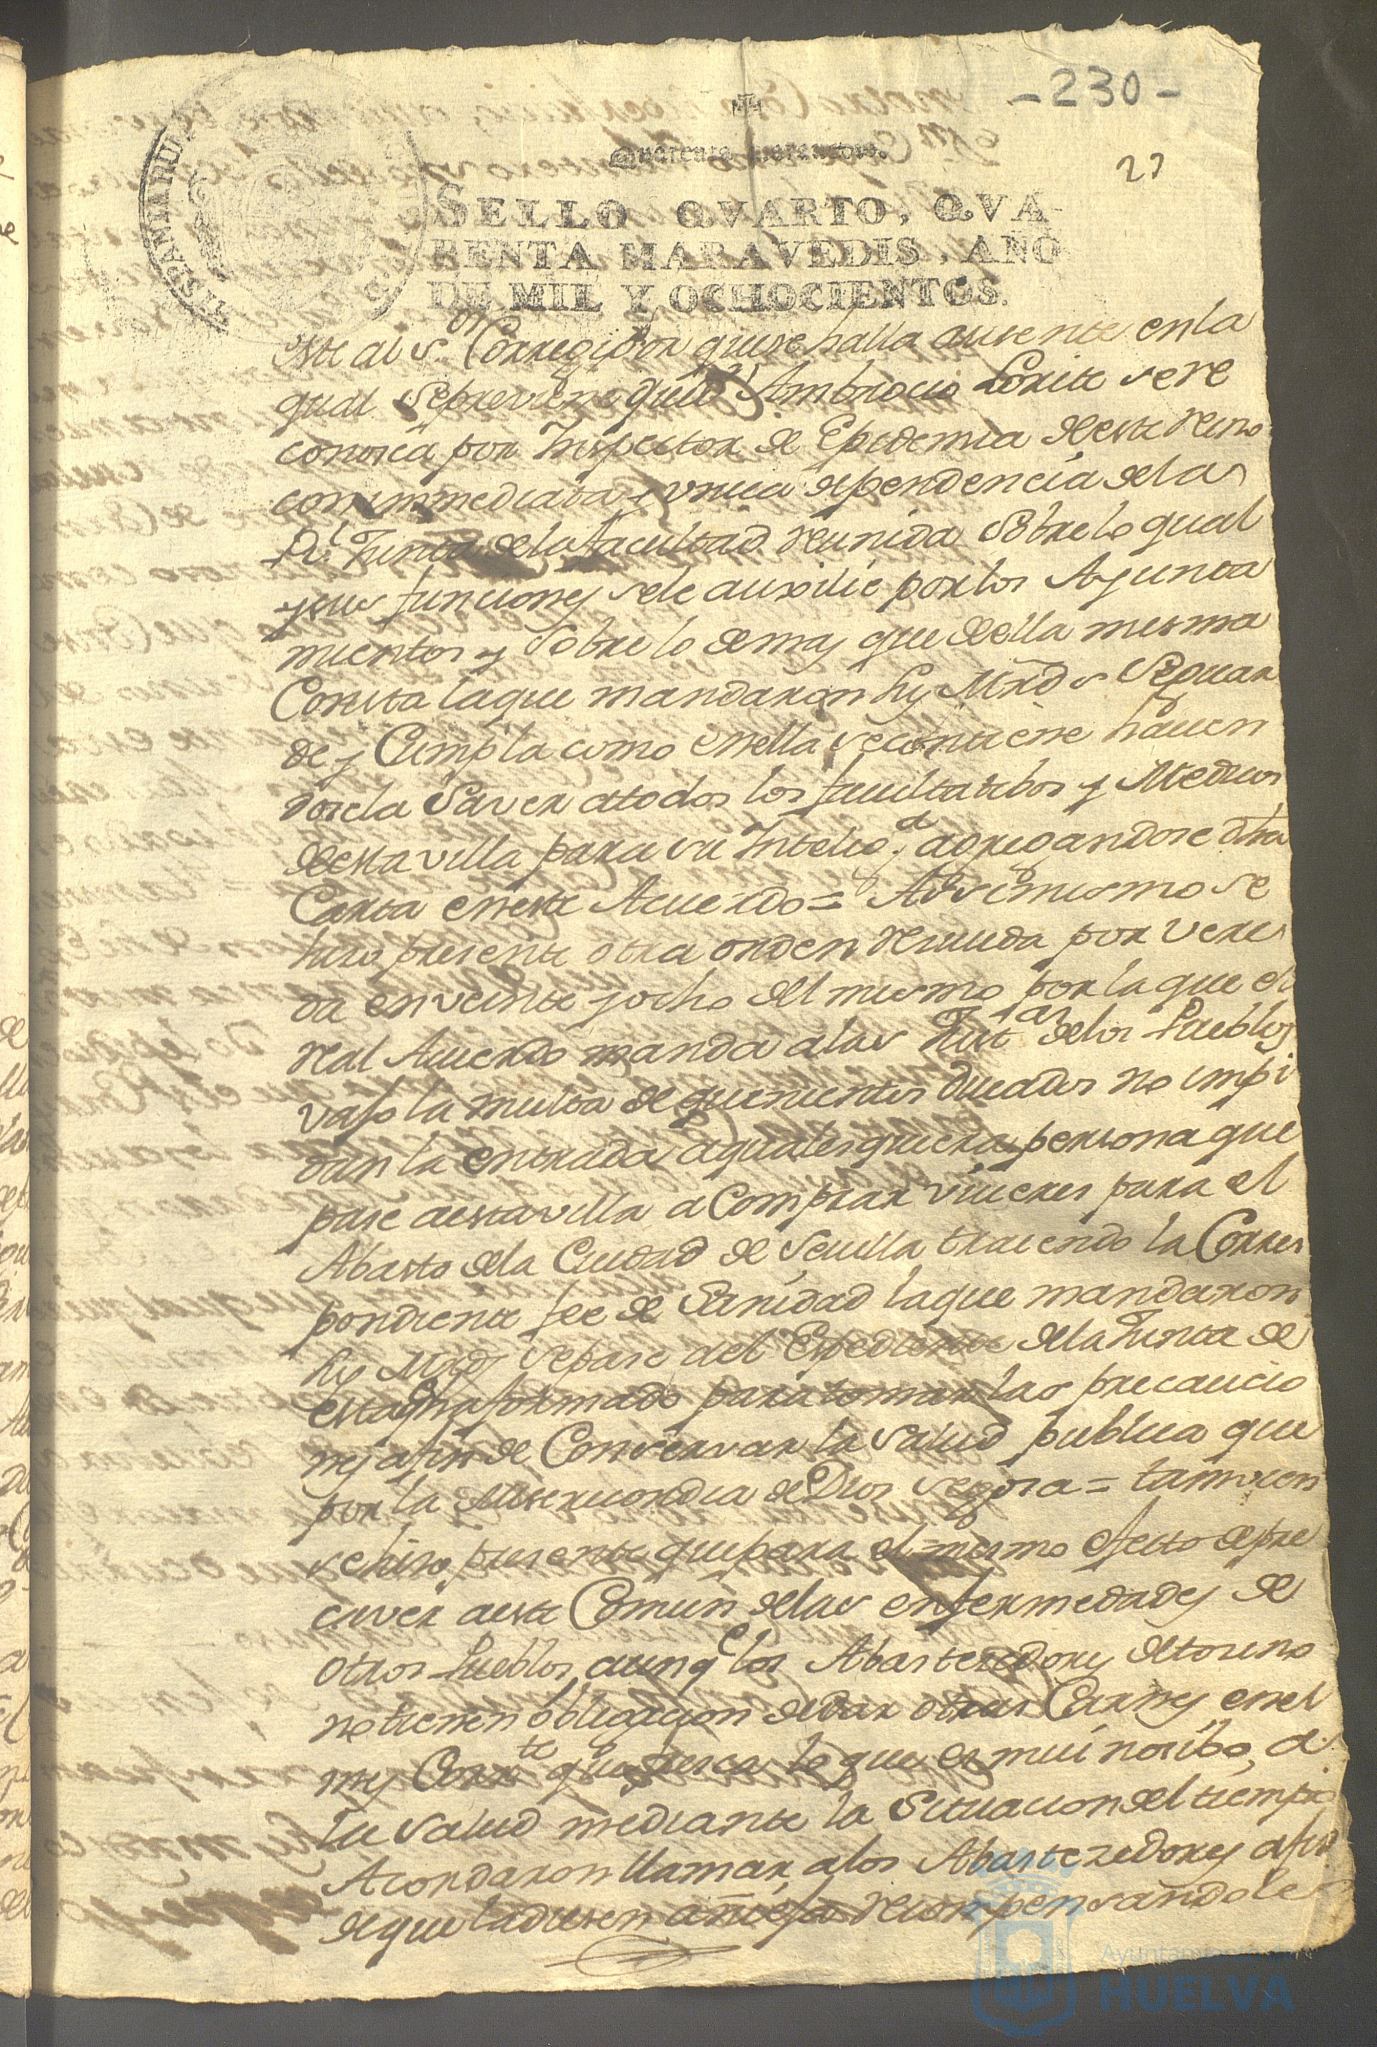 -230-
27
Quarenta maravedis.
SELLO QVARTO, QVA-
RENTA MARAVEDIS, AÑO
DE MIL Y OCHOCIENTOS.
HISPANIARUM
este al Sor. Corregidor que se halla ausente en la
qual se previene que dn. Ambrocio Lorite se re
conosca por Inspector de Epidemia de este Reino
con immediata y vnica dependencia de la
Rl. Junta de la facultad reunida sobre lo qual
y sus funciones se le auxilie por los Ayunta
mientos y sobre lo demas que de ella misma
Consta la que mandaron sus Mrds se guar
de y Cumpla como en ella se contiene havien
dosela Saver a todos los facultatibos y Medicos
de esta villa para su Intelig.a agregandose dha
Carta en este Acuerdo = Assimismo se
hizo presente otra orden reciuida por vere
da en veinte y ocho del mismo por la que el
Real Acuerdo manda a las Justas. de los Pueblos
vajo la multa de quinientos ducados no impi
dan la entrada a qualesquiera persona que
pase a esta villa a Comprar viueres para el
Abasto de la Ciudad de Seuilla trayendo la Corres
pondiente fee de Sanidad la que mandaron
sus Mrds se pase al Expediente de la Junta de
esta formado para tomar las precaucio
nes a fin de Conservar la Salud publica que
por la Misericordia de Dios se gosa = tamvien
se hizo presente que para el mismo efecto de pre
caver a este Comun de las enfermedades de
otros Pueblos aunqe los Abastezedores de tosino
no tienen obligacion de dar otras Carnes en el
mes Corrte que fresca lo que es mui nosibo a
la salud mediante la Situacion del tiempo
Acordaron llamar a los Abastezedores a fin
de que la diesen añeja recompensandole
Ayuntamiento de
HUELVA